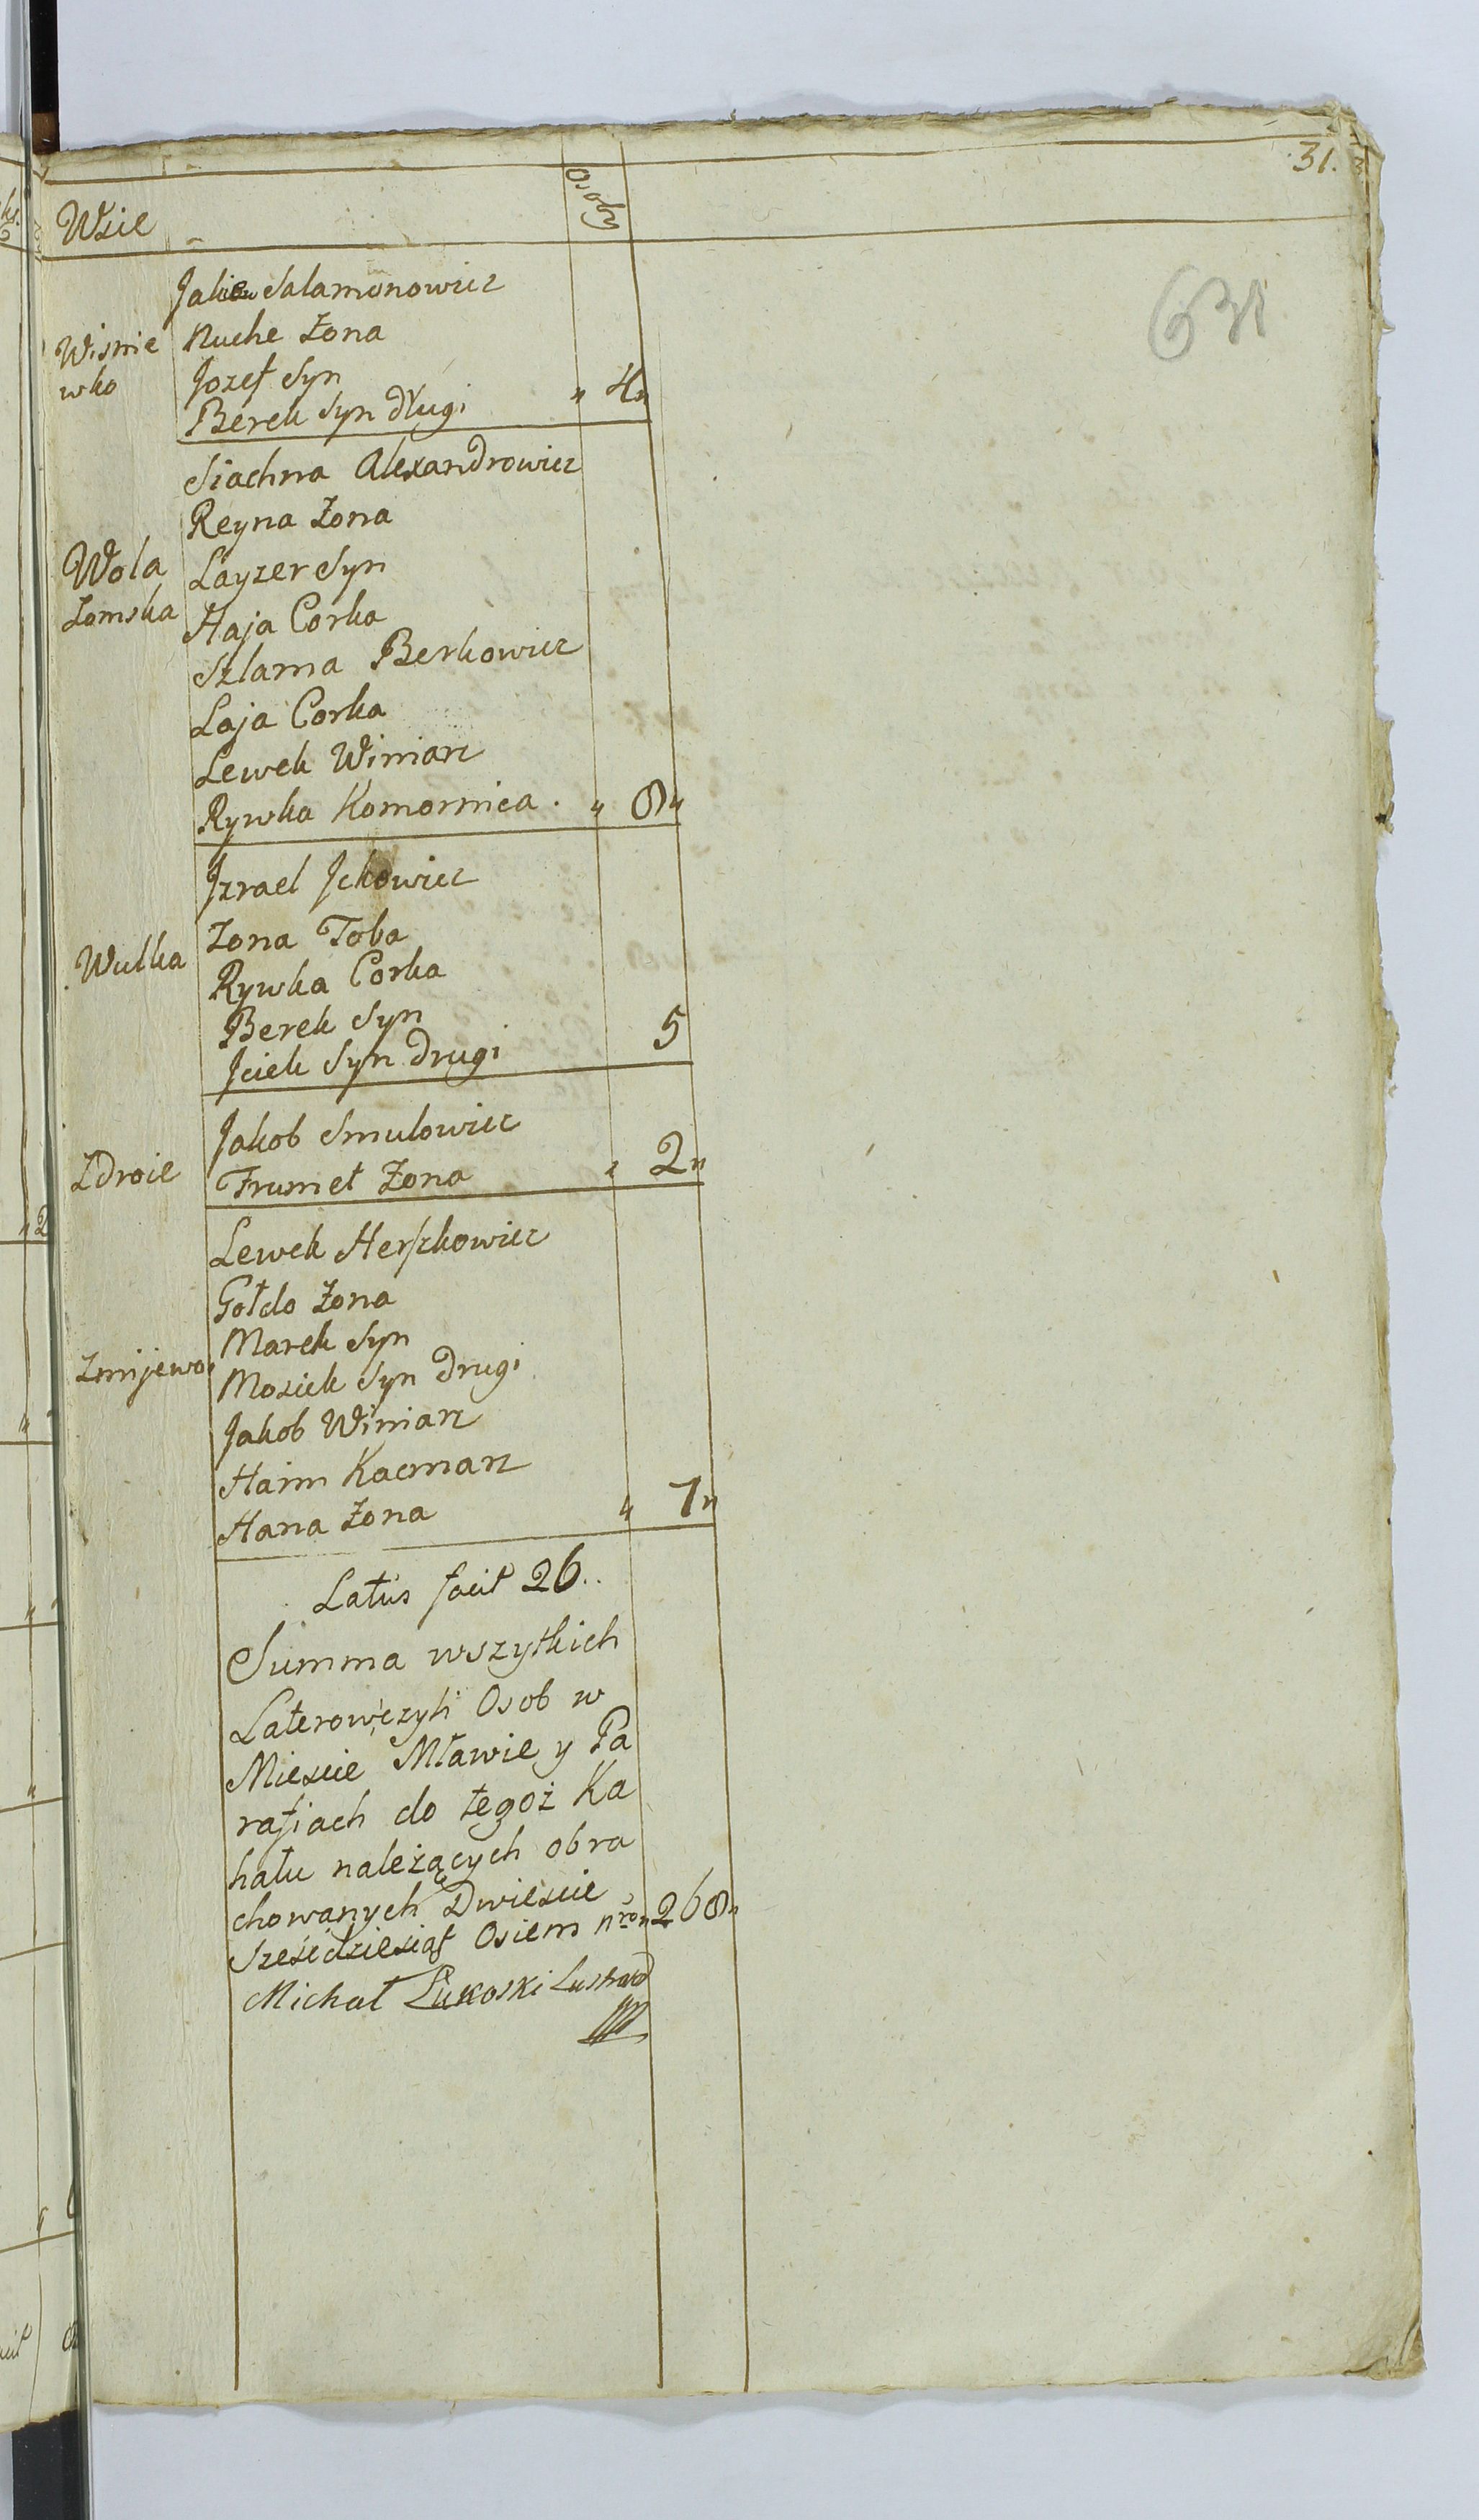 31.
Wsie
Osoby
631
Jakow Salamonowicz
Nuche Zona
Wisnie
wko
Jozef Syn
Berek Syn długi „ 4„
Siachna Alexandrowicz
Reyna Zona
Wola
Layzer Syn
Zomska
Haja Corka
Szlama Berkowicz
Laja Corka
Lewek Winiarz
Rywka Komornica . „ 8„
Jzrael Jckowicz
Zona Toba
Wulka
Rywka Corka
Berek Syn
Jciek Syn Drugi 5
Jakob Smulowicz
Zdroie
Frumet Zona „ 2„
Lewek Herszkowicz
Gołdo Zona
Marek Syn
Zmijewo
Mosiek Syn Drugi
Jakob Winiarz
Haim Kacmarz
Hana Zona „ 7„
Latus facit 26..
Summa wszytkich
Laterow czyli Osob w
Miescie Mławie y Pa
rafiach do tegoż Ka
hału należących obra
chowanych Dwiescie
Sześćdziesiąt Osiem nro „268„
Michał Łukoski Lustrator